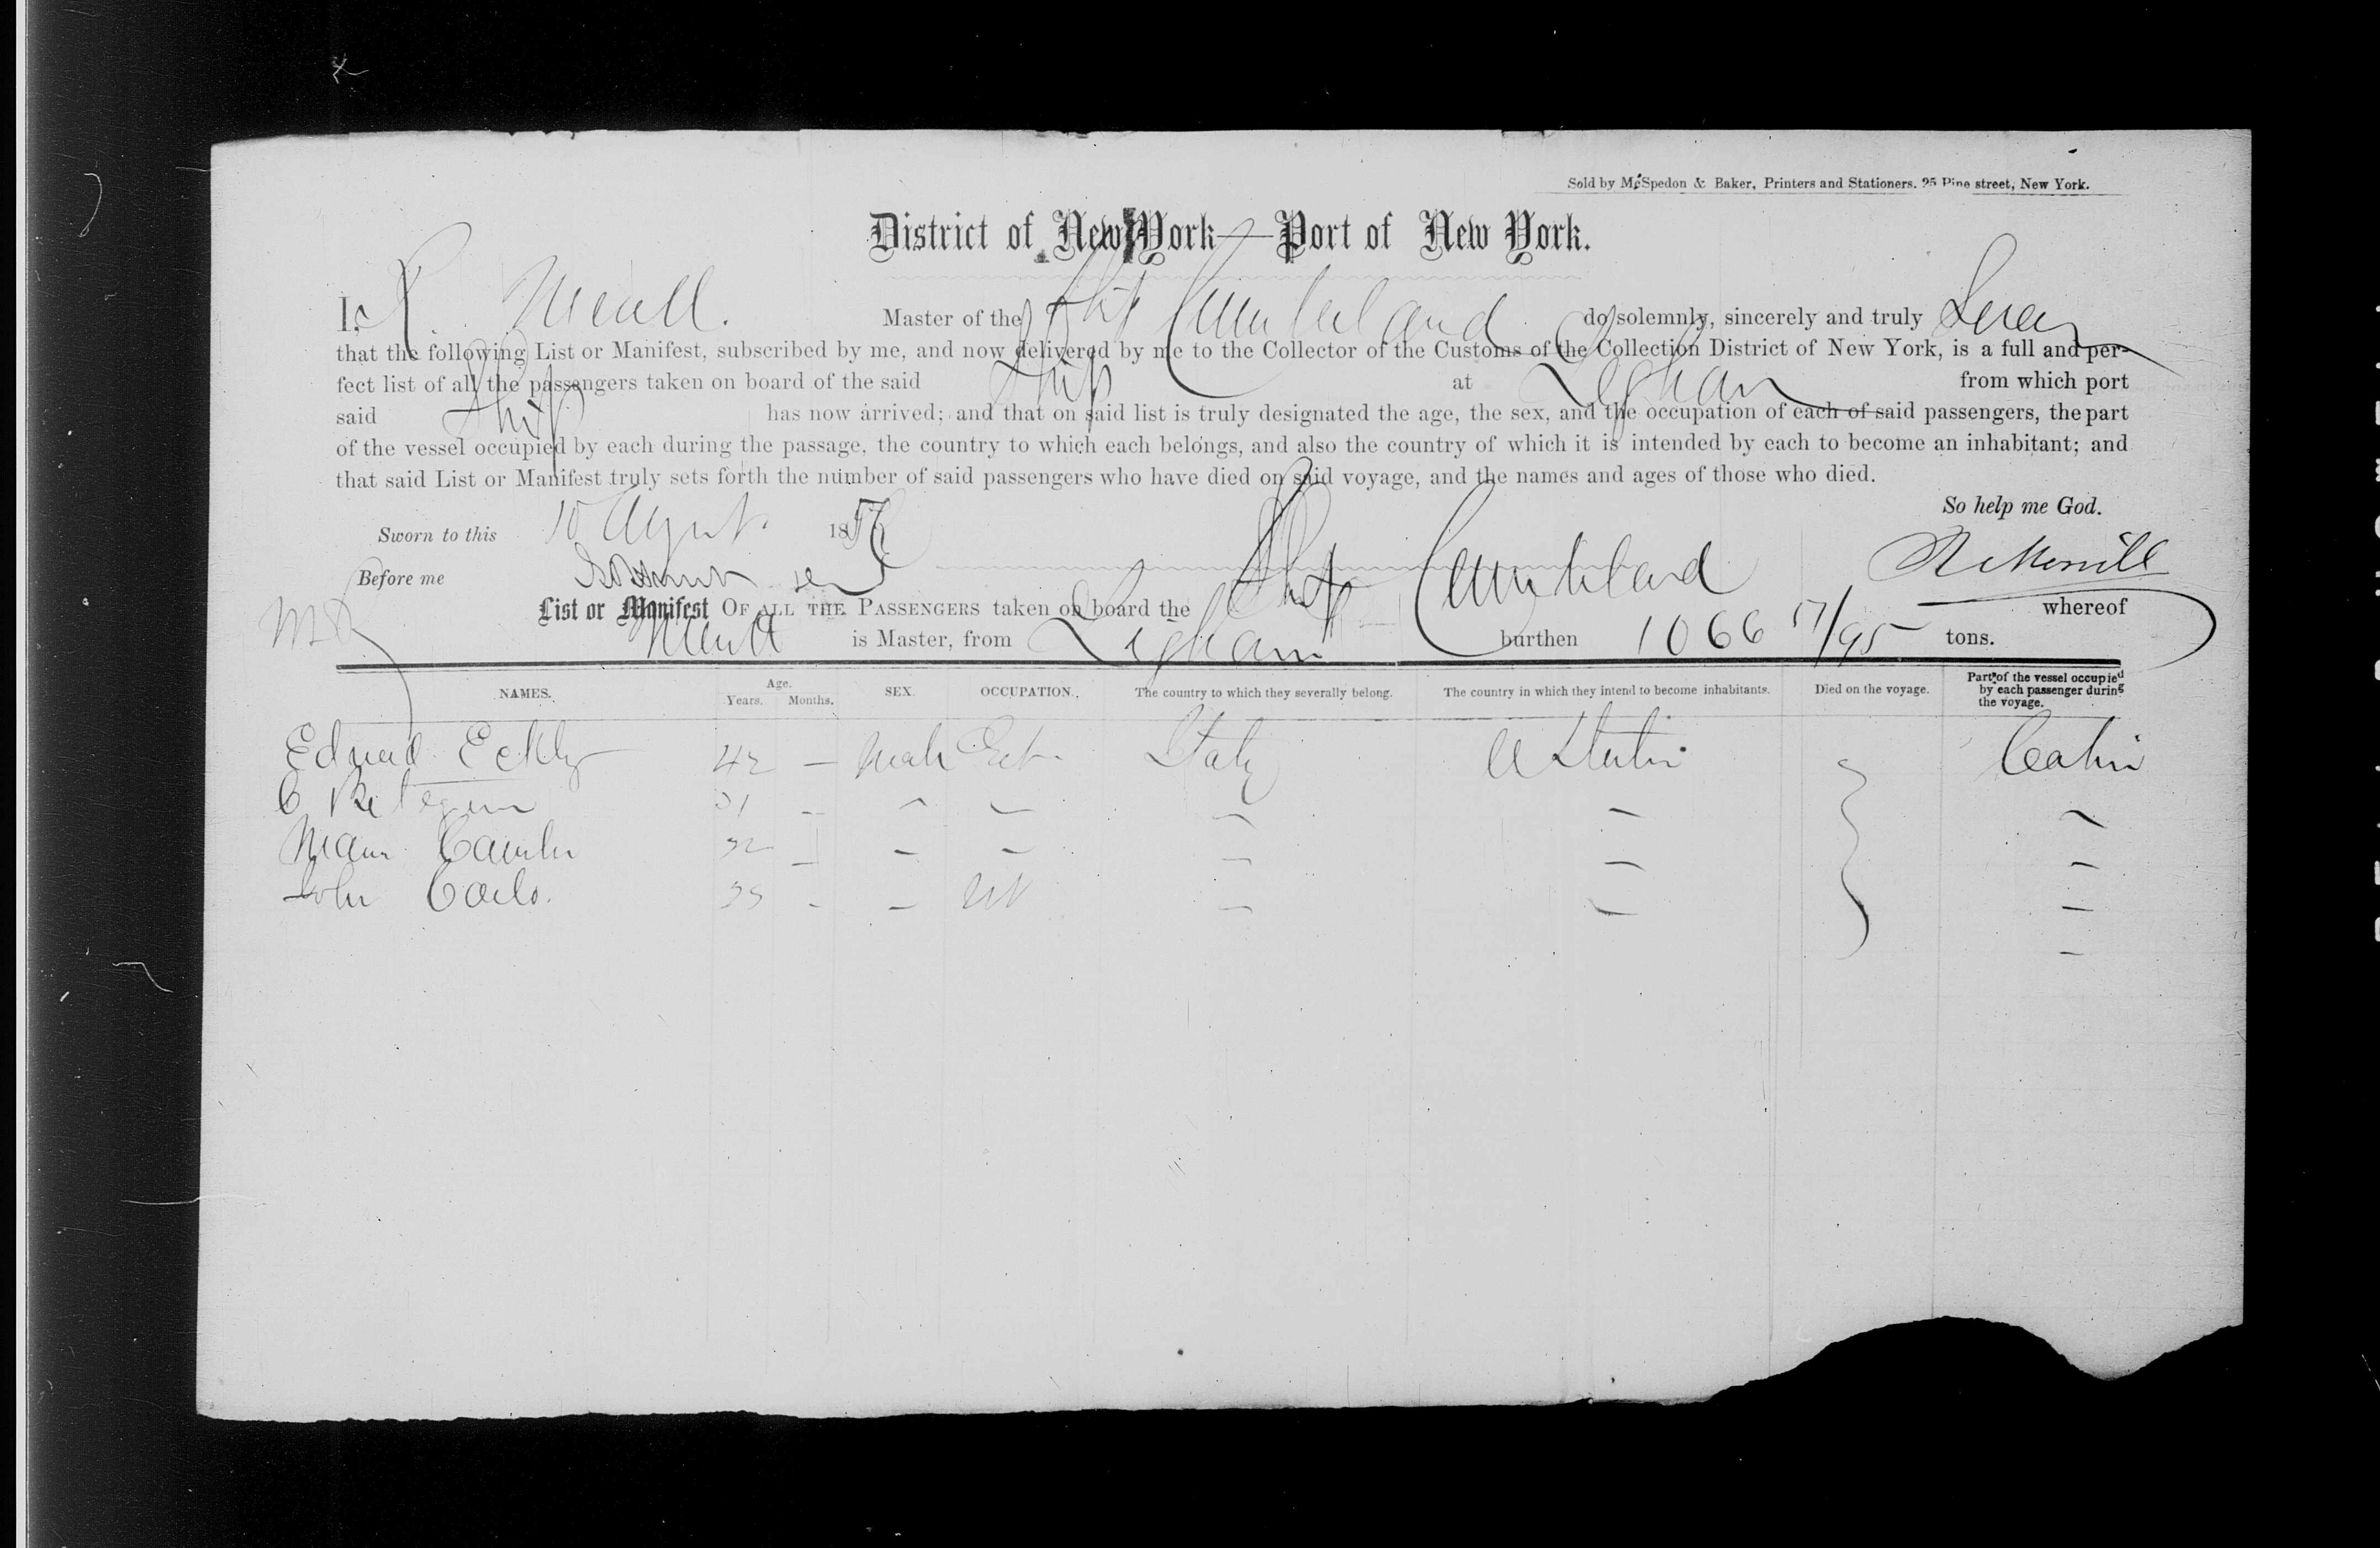 Sold by McSpedon & Baker, Printers and Stationers. 25 Pine street, New York.
District of New York—Port of New York.
I, R Merrill. Master of the Ship Cumberland do solemnly, sincerely and truly Swear
that the following List or Manifest, subscribed by me, and now delivered by me to the Collector of the Customs of the Collection District of New York, is a full and per-
fect list of all the passengers taken on board of the said Ship at Leghorn from which port
said Ship has now arrived; and that on said list is truly designated the age, the sex, and the occupation of each of said passengers, the part
of the vessel occupied by each during the passage, the country to which each belongs, and also the country of which it is intended by each to become an inhabitant; and
that said List or Manifest truly sets forth the number of said passengers who have died on said voyage, and the names and ages of those who died.
So help me God.
Sworn to this August. 1856
Before me
R Merrill
List or Manifest OF ALL THE PASSENGERS taken on board the Ship Cumberland whereof
Merrill is Master, from Leghorn burthen 1066 57/95 tons.
NAMES. Age. Years. Months. SEX. OCCUPATION. The country to which they severally belong. The country in which they intend to become inhabitants. Died on the voyage. Part of the vessel occupied by each passenger during the voyage.
Edward 42 — Male Italy U States Cabin
C 31
32
John Carlo.